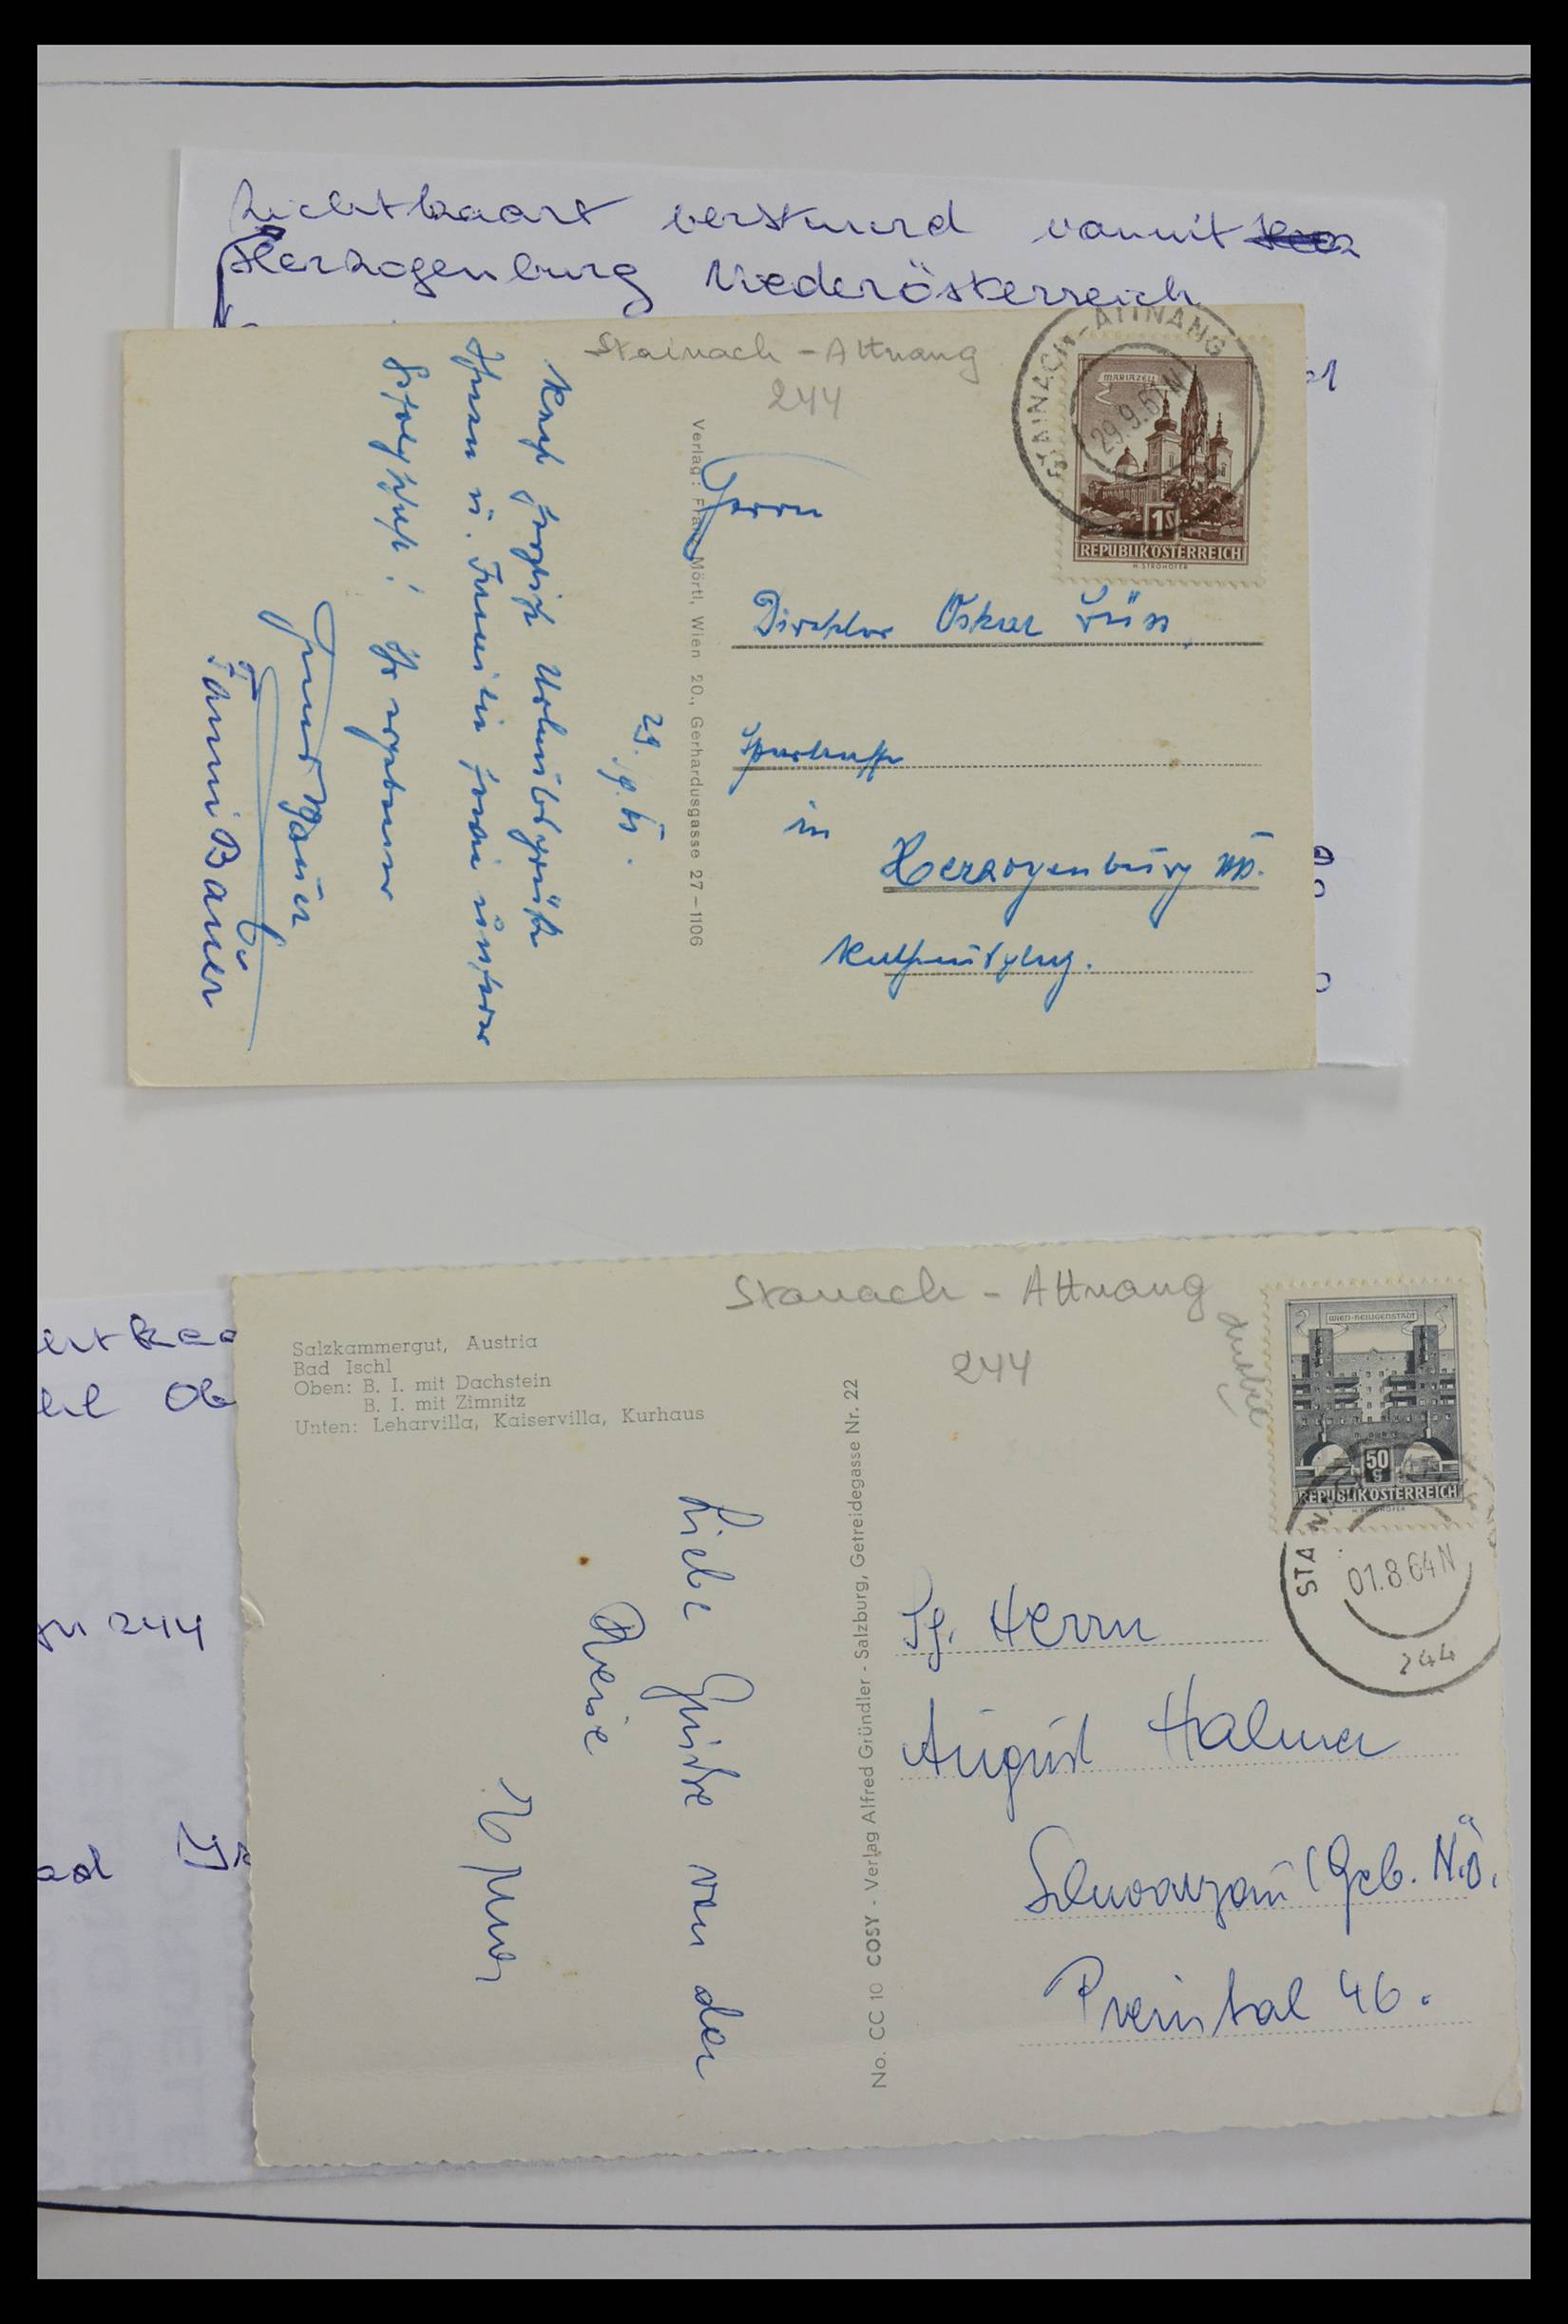 Zichtkaart verstuurd vanuit
Herzogenburg Niederösterreich
Stainach - Attnang
244
STAINACH-ATTNANG
29.9.61
MARIAZELL
1S
REPUBLIK ÖSTERREICH
H. STROHOFER
Herrn
Direktor Oskar
Sparkasse
in
Herzogenburg NÖ.
Verlag: Franz Mörtl, Wien 20., Gerhardusgasse 27-1106
29. 9. 61.
Recht herzliche Urlaubsgrüße
Ihnen u. Familie sowie unserer
Ihr ergebener
Bauer
Fanni Bauer
Stanach - Attnang
244
dubbel
WIEN-HEILIGENSTADT
50
g
REPUBLIK ÖSTERREICH
H. STROHOFER
STAINACH
01.8.64N
244
Salzkammergut, Austria
Bad Ischl
Oben: B. I. mit Dachstein
B. I. mit Zimnitz
Unten: Leharvilla, Kaiservilla, Kurhaus
Sg. Herrn
August Halmer
Schwarzau / Geb. N.Ö.
Preintal 46.
No. CC 10 COSY - Verlag Alfred Gründler - Salzburg, Getreidegasse Nr. 22
Liebe Grüße von der
Reise
244